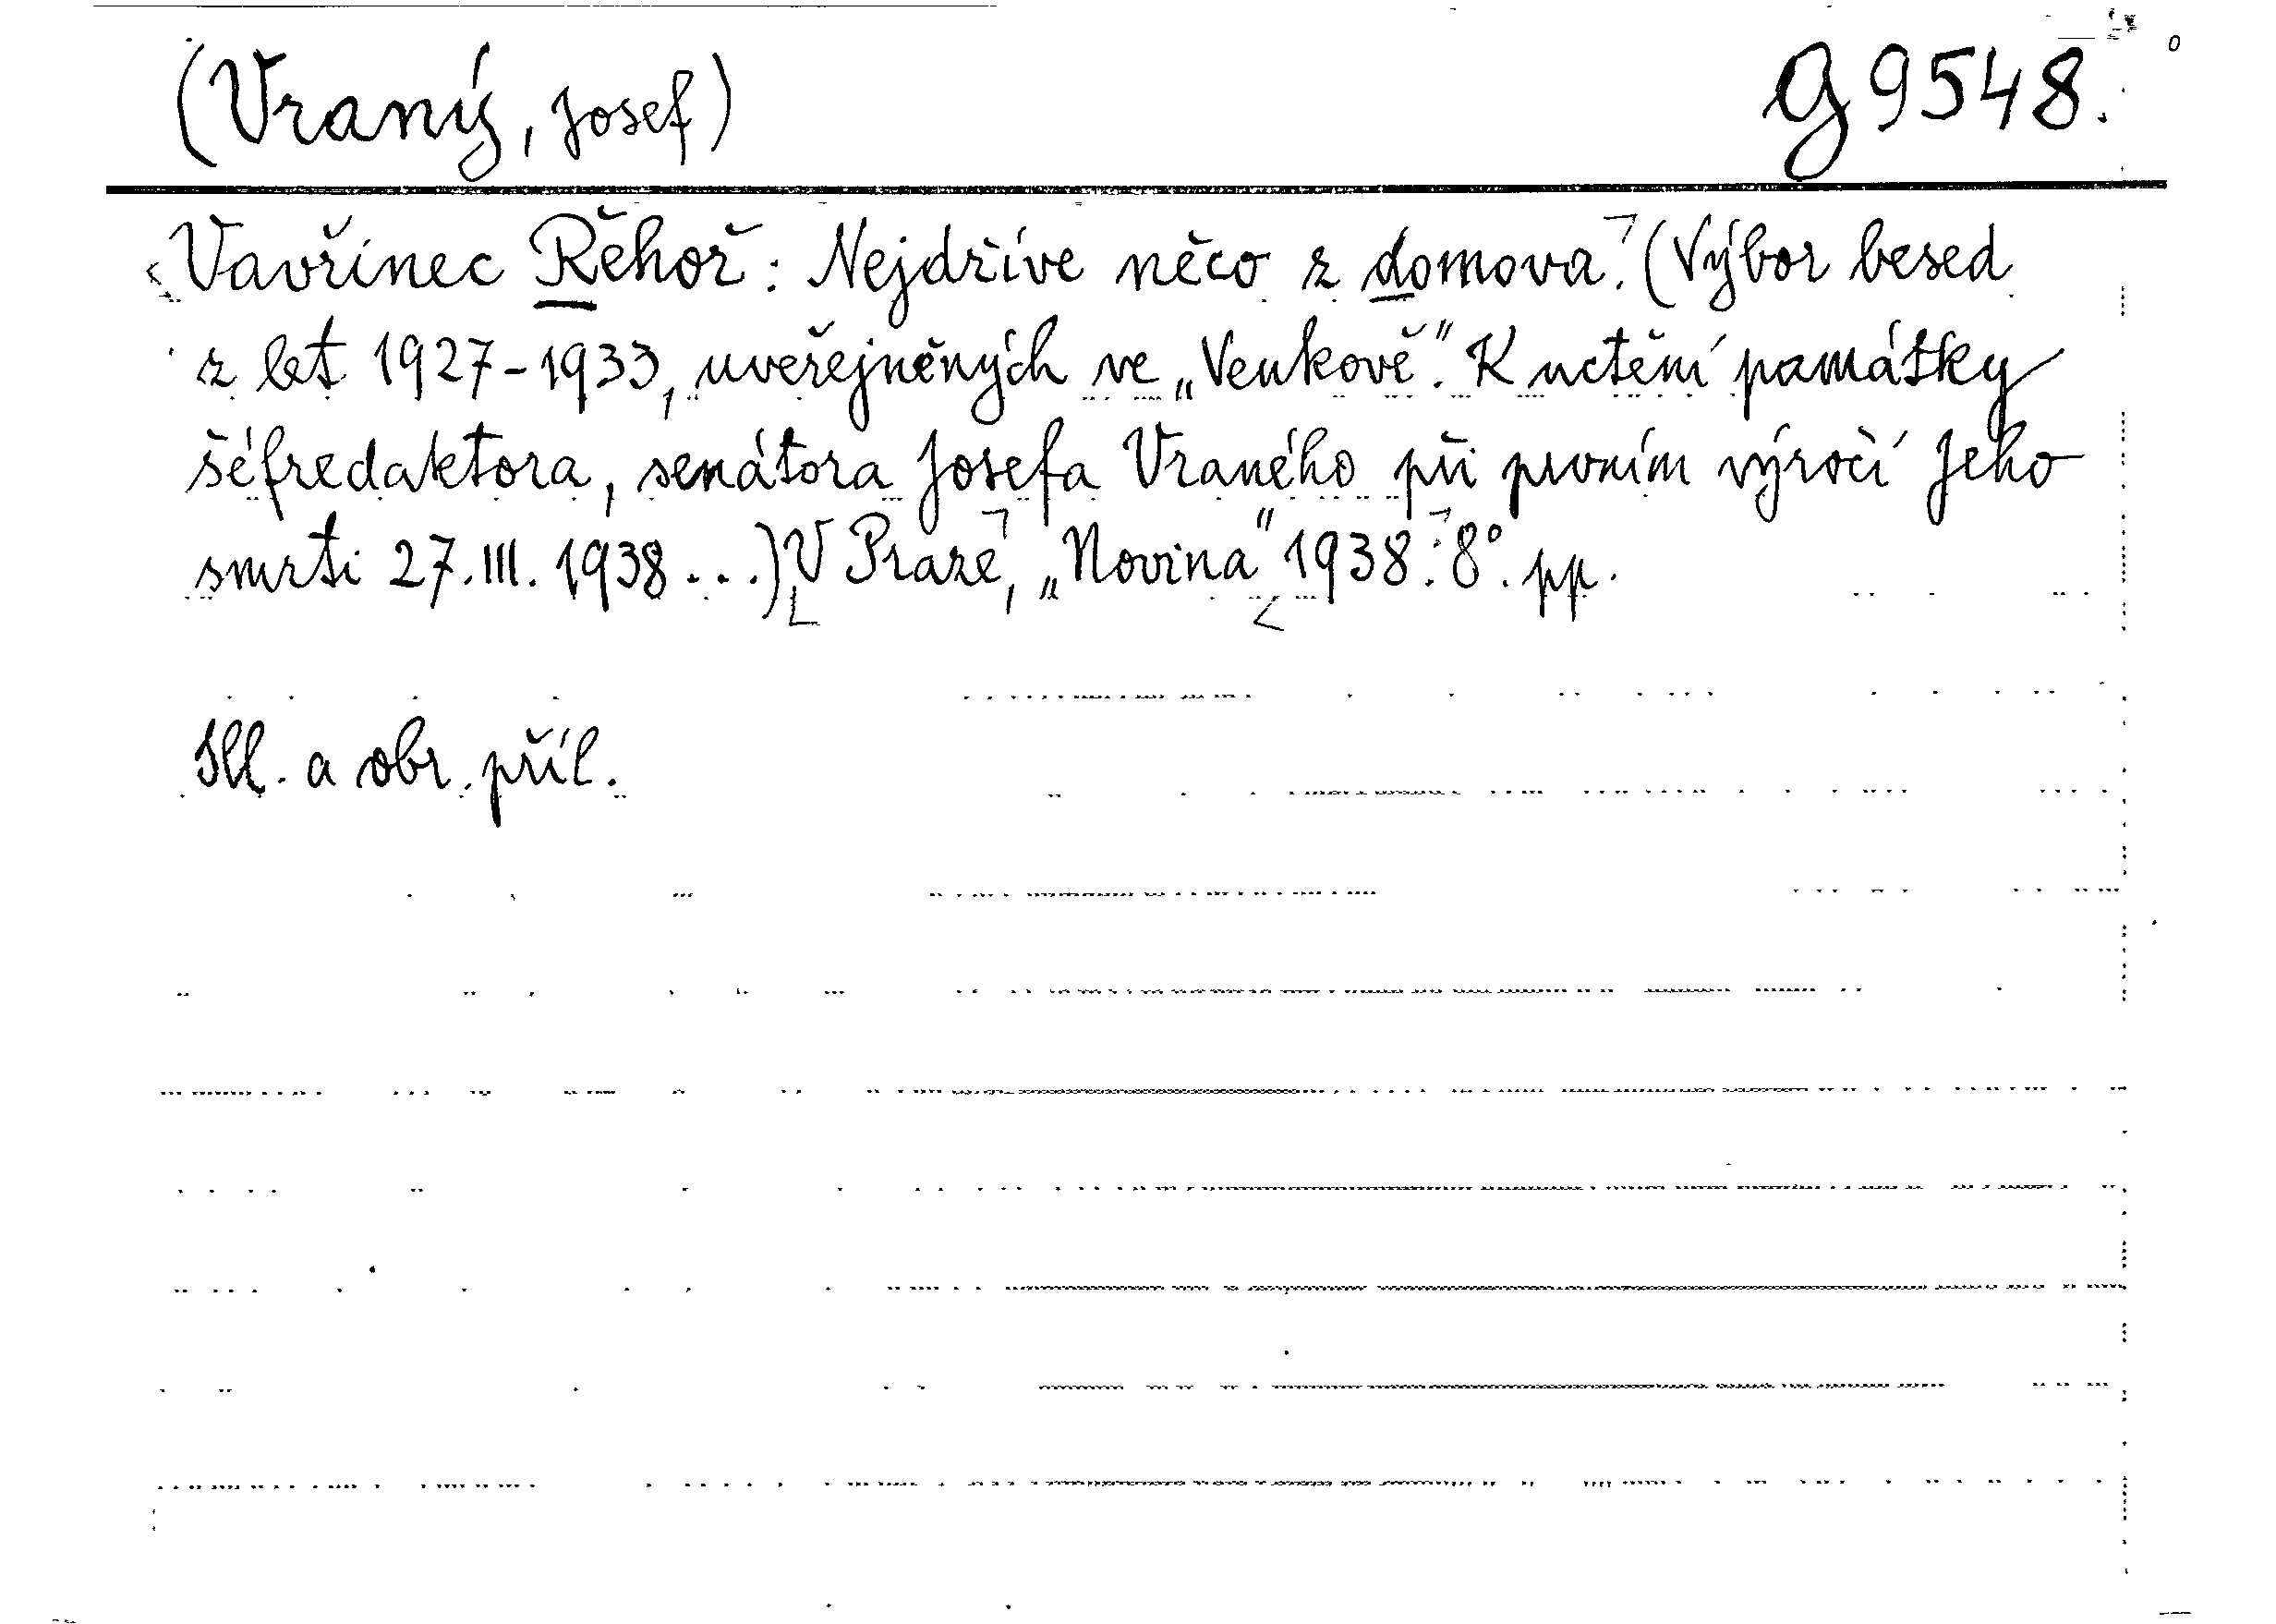 (Vraný, Josef) G 9548.
Vavřinec Řěhoř: Nejdříve něco z domova. (Výbor besed
z let 1927-1933, uveřejněných ve „Venkově". K uctění památky
šéfredaktora, senátora Josefa Vraného při prvním výročí jeho
smrti 27.III.1938...) V Praze, „Novina" 1938. 8°. pp.
Ill. a obr. příl.